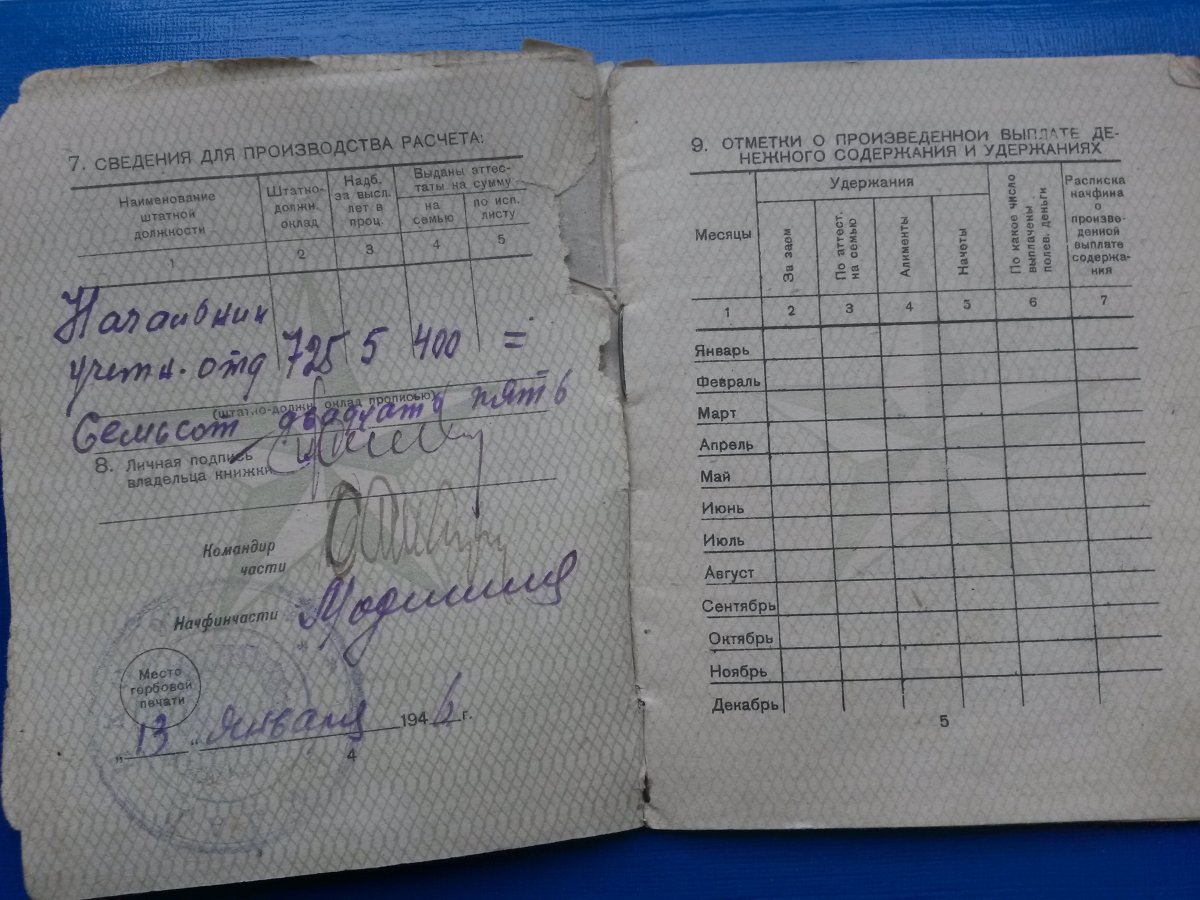 7. СВЕДЕНИЯ ДЛЯ ПРОИЗВОДСТВА РАСЧЕТА:
Наименование штатной должности
Штатно-должн. оклад
Надб. за высл. лет в проц.
Выданы аттес-
таты на сумму
на семью
по исп. листу
1 2 3 4 5
Начальник
учетн. отд 725 5 400 =
(штатно-должн. оклад прописью)
Семьсот двадцать пять
8. Личная подпись
владельца книжки
Командир
части
Начфинчасти
Место
гербовой
печати
„13 " января 1946 г.
4
9. ОТМЕТКИ О ПРОИЗВЕДЕННОЙ ВЫПЛАТЕ ДЕ-
НЕЖНОГО СОДЕРЖАНИЯ И УДЕРЖАНИЯХ
Месяцы
Удержания
За заем
По аттест. на семью
Алименты
Начеты
По какое число выплачены полев. деньги
Расписка
начфина
о
произве-
денной
выплате
содержа-
ния
1 2 3 4 5 6 7
Январь
Февраль
Март
Апрель
Май
Июнь
Июль
Август
Сентябрь
Октябрь
Ноябрь
Декабрь
5